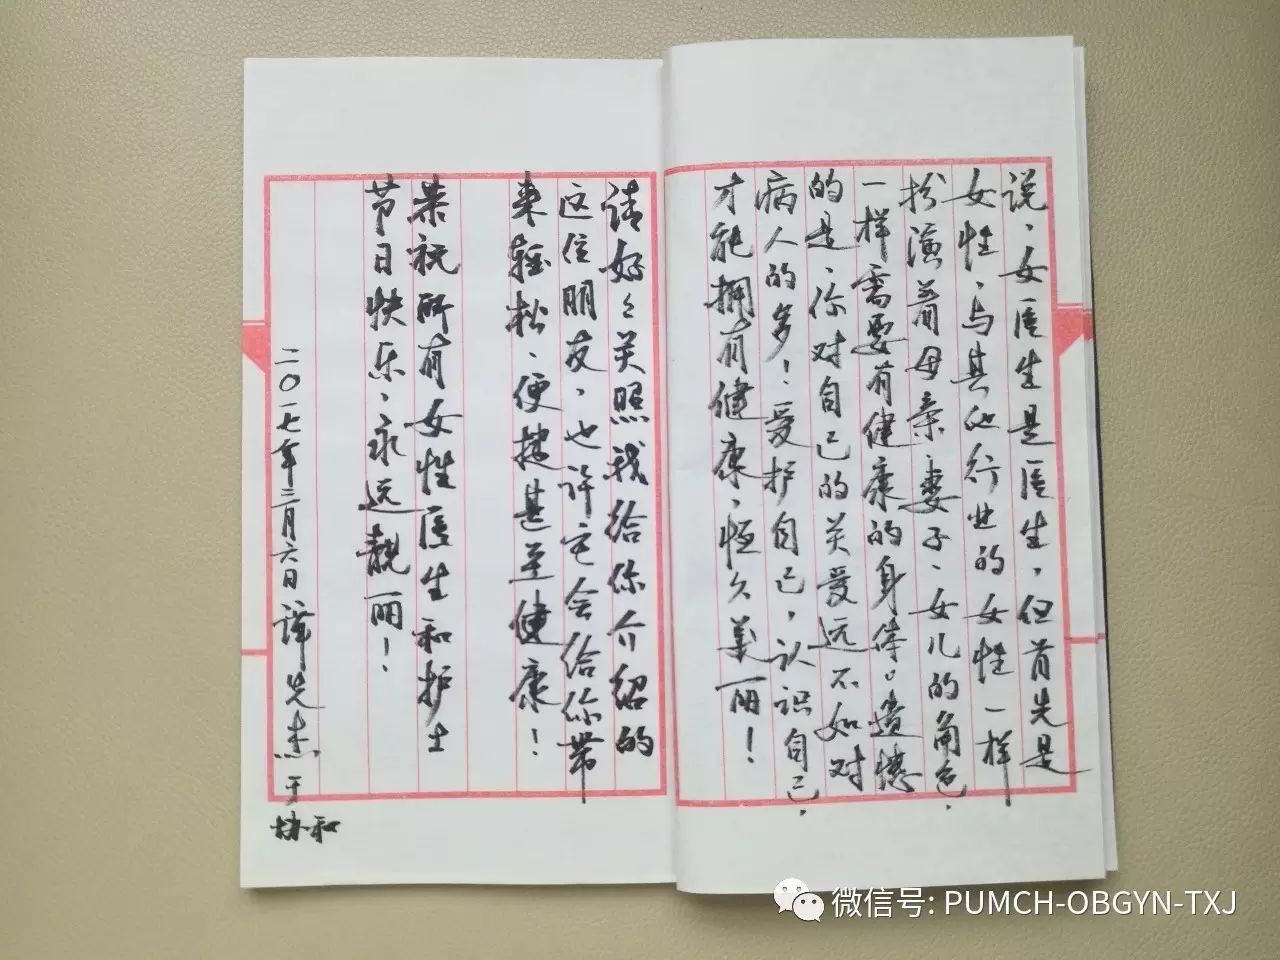 说，女医生是医生，但首先是
女性，与其他行业的女性一样
扮演着母亲、妻子、女儿的角色，
一样需要有健康的身体。遗憾
的是，你对自己的关爱远不如对
病人的多！爱护自己，认识自己，
才能拥有健康，恒久美丽！
请好好关照我给你介绍的
这位朋友，也许它会给你带
来轻松、便捷甚至健康！
恭祝所有女性医生和护士
节日快乐，永远靓丽！
二〇一七年三月六日 谭先杰于
协和
微信号: PUMCH-OBGYN-TXJ